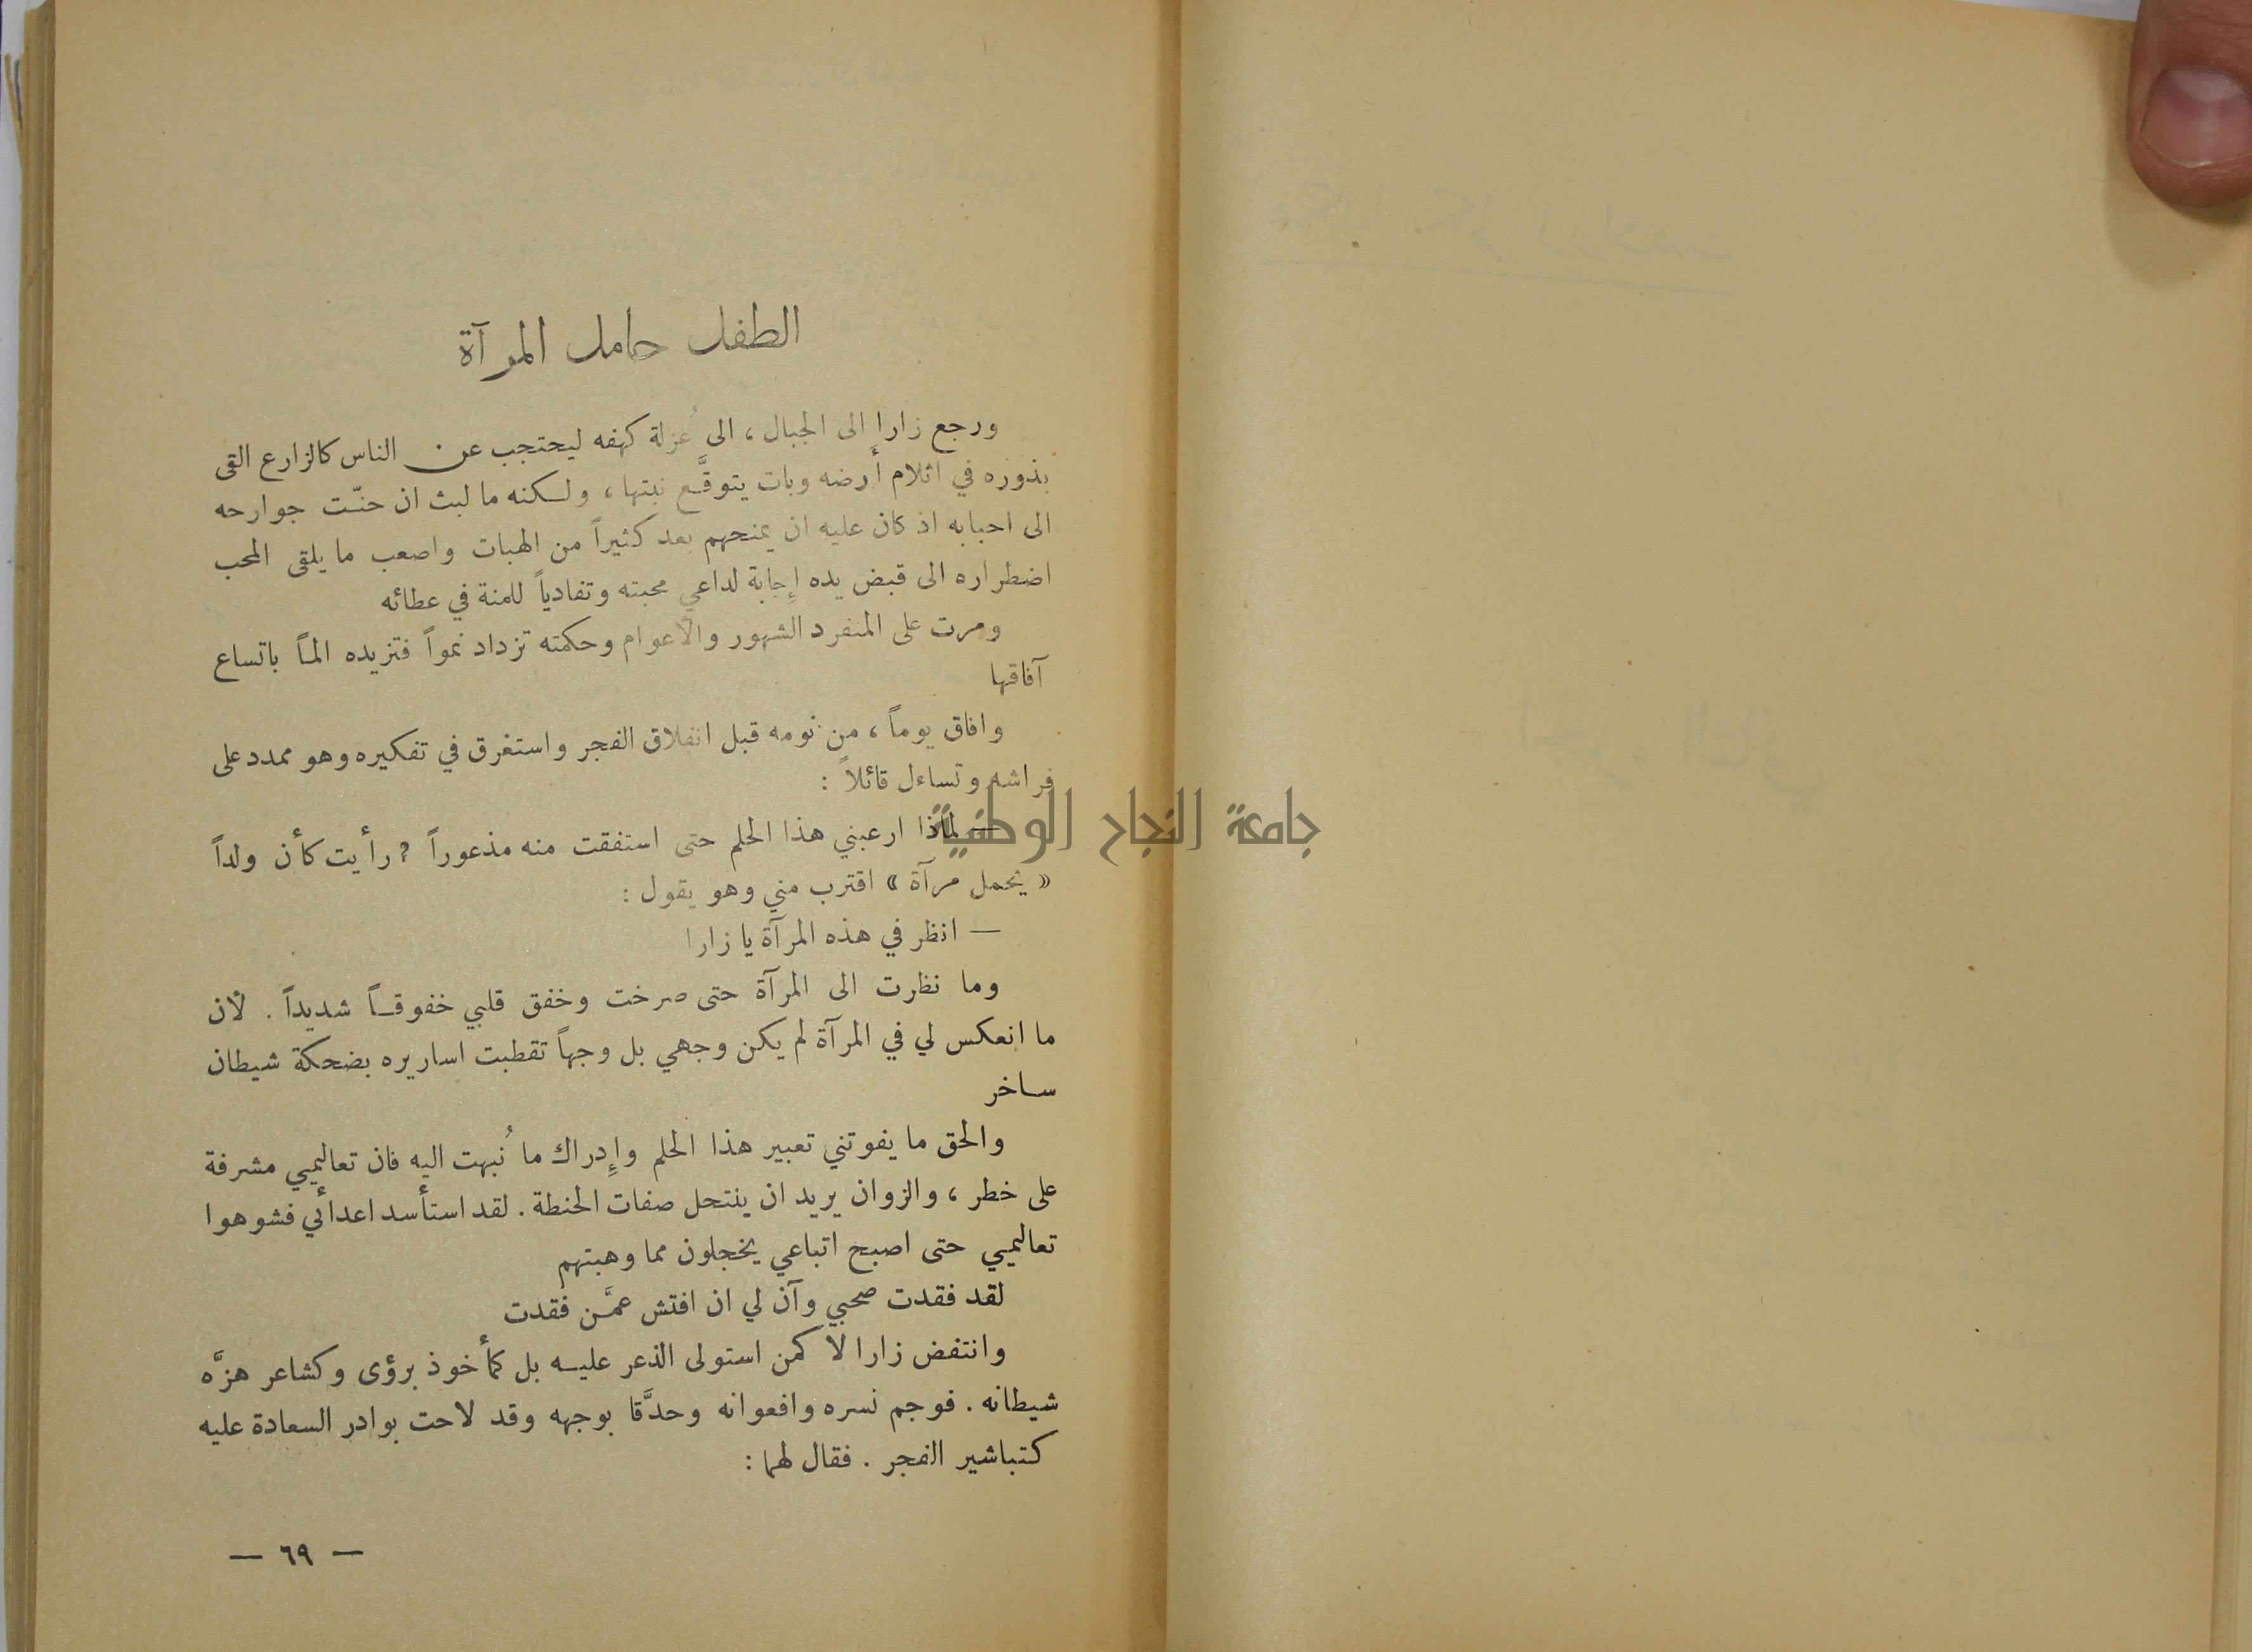 الطفل حامل المرآة
ورجع زارا إلى الجبال ، الى عُزلة كهفه ليحتجب عن الناس كالزارع القى
بذوره في اثلام أَرضه وبات يتوقَّع نبتها ، ولكنه ما لبث ان حنّت جوارحه
الى احبابه اذ كان عليه ان يمنحهم بعد كثيراً من الهبات واصعب ما يلقى المحب
اضطراره الى قبض يده إِجابة لداعي محبته وتفادياً للمنة في عطائه
ومرت على المنفرد الشهور والأعوام وحكمته تزداد نمواً فتزيده الماً باتساع
آفاقها
وافاق يوماً ، من نومه قبل انفلاق الفجر واستغرق في تفكيره وهو ممدد على
فراشه وتساءل قائلاً :
— لماذا ارعبني هذا الحلم حتى استفقت منه مذعوراً ؟ رأيت كأن ولداً
« يحمل مرآة » اقترب مني وهو يقول :
— انظر في هذه المرآة يا زارا
وما نظرت الى المرآة حتى صرخت وخفق قلبي خفوقاً شديداً . لأن
ما انعكس لي في المرآة لم يكن وجهي بل وجهاً تقطبت اساريره بضحكة شيطان
ساخر
والحق ما يفوتني تعبير هذا الحلم وإِدراك ما نُبهت اليه فان تعاليمي مشرفة
على خطر ، والزوان يريد ان ينتحل صفات الحنطة . لقد استأسد اعدائي فشوهوا
تعاليمي حتى اصبح اتباعي يخجلون مما وهبتهم
لقد فقدت صحبي وآن لي ان افتش عمَّن فقدت
وانتفض زارا لا كمن استولى الذعر عليه بل كمأخوذ برؤى وكشاعر هزَّه
شيطانه . فوجم نسره وافعوانه وحدَّقا بوجهه وقد لاحت بوادر السعادة عليه
كتباشير الفجر . فقال لهما :
— ٦٩ —
جامعة النجاح الوطنية